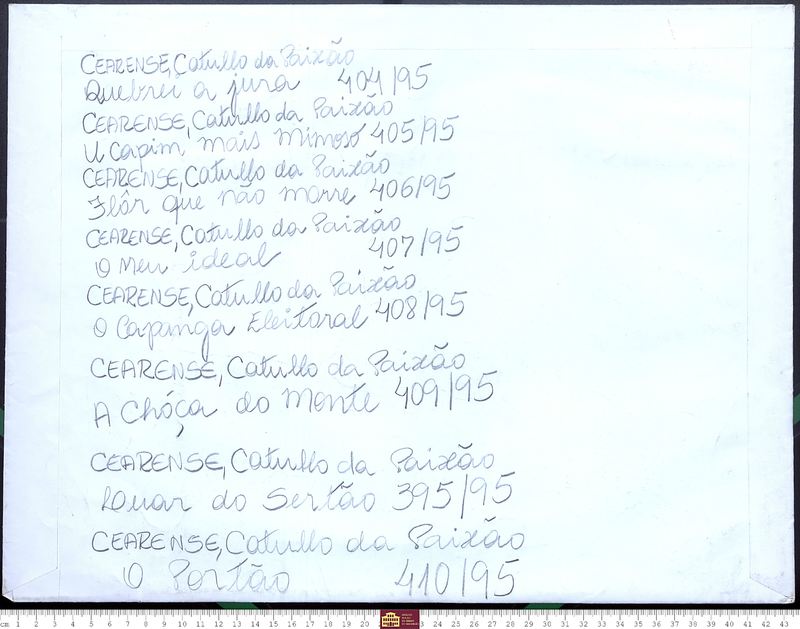 CEARENSE, Catullo da Paixão
Quebrei a jura 404/95
CEARENSE, Catullo da Paixão
U Capim mais mimoso 405/95
CEARENSE, Catullo da Paixão
Flôr que não morre 406/95
CEARENSE, Catullo da Paixão
O Meu ideal 407/95
CEARENSE, Catullo da Paixão
O Capanga Eleitoral 408/95
CEARENSE, Catullo da Paixão
A Chóça do Monte 409/95
CEARENSE, Catullo da Paixão
Luar do Sertão 395/95
CEARENSE, Catullo da Paixão
O Portão 410/95
cm 1 2 3 4 5 6 7 8 9 10 11 12 13 14 15 16 17 18 19 20 23 24 25 26 27 28 29 30 31 32 33 34 35 36 37 38 39 40 41 42 43